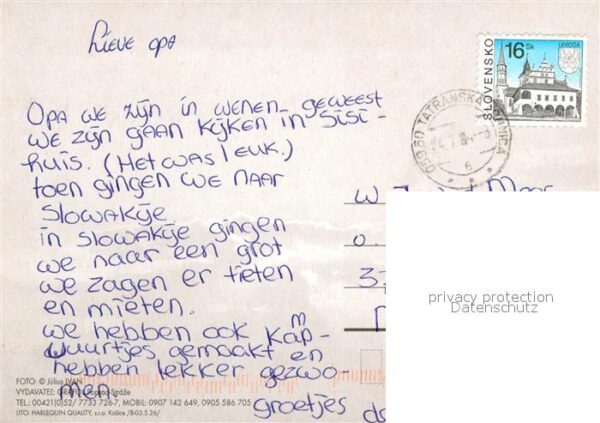 Lieve opa
Opa we zijn in wenen geweest
we zijn gaan kijken in Sisi-
huis. (Het was leuk.)
toen gingen we naar
Slowakije
in Slowakije gingen
we naar een grot
we zagen er tieten
en mieten.
we hebben ook kamp
vuurtjes gemaakt en
hebben lekker gezwo-
men.
groetjes
SLOVENSKO
16 Sk
LEVOČA
05960 TATRANSKÁ
6
W
o.
37
privacy protection
Datenschutz
FOTO: © Július IVAN
VYDAVATEĽ: GRAFO
TEL: 00421(0)52/ 7733 726-7, MOBIL: 0907 142 649, 0905 586 705
LITO: HARLEQUIN QUALITY, s.r.o. Košice /B-03.5.26/